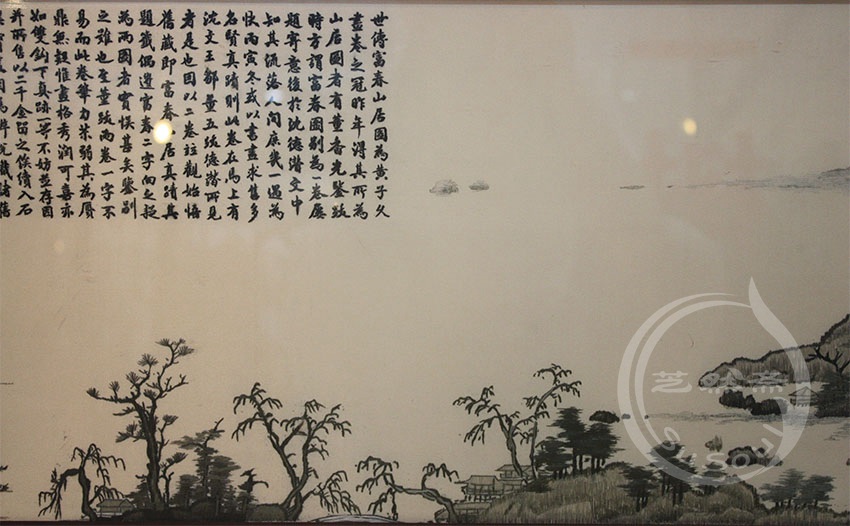 世傳富春山居圖為黃子久
畫卷之冠昨年得其所為
山居圖者有董香光鑒跋
時方謂富春圖別為一卷屢
題寄意後於沈德潛文中
知其流落人間庶幾一遇為
快丙寅冬或以書畫求售多
名賢真蹟則此卷在馬上有
沈文王鄒董五跋德潛所見
者是也因以二卷竝觀始悟
舊藏即富春居真蹟其
題籤偶遺富春二字向之疑
為兩圖者實悞甚矣鑒別
之難也至董跋兩卷一字不
易而此卷筆力苶弱其為贗
鼎無疑惟畫格秀潤可喜亦
如雙鉤下真跡一等不妨竝存因
并所售以二千金留之俟續入石